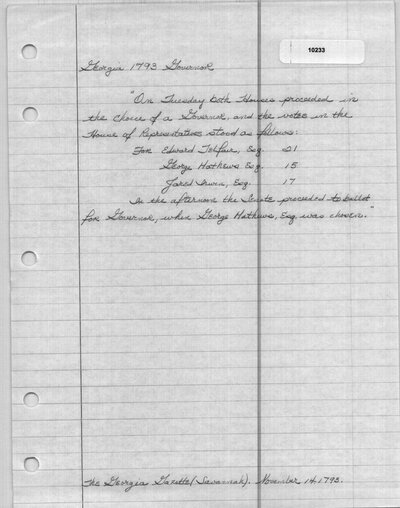 10233
Georgia 1793 Governor
"On Tuesday both Houses proceeded in
the choice of a Governor, and the votes in the
House of Representatives stood as follows:
For Edward Telfair, Esq. 21
George Mathews Esq. 15
Jared Irwin, Esq. 17
In the afternoon the Senate proceeded to ballot
for Governor, when George Mathews, Esq. was chosen."
The Georgia Gazette (Savannah). November 14, 1793.